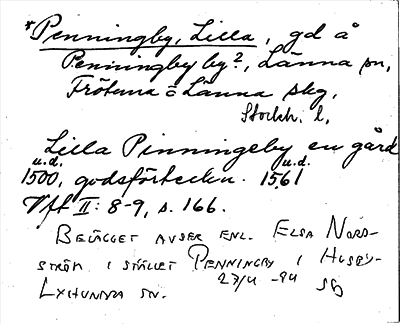 *Penningby, Lilla, gd å
Penningby by², Länna sn,
Frötuna o Länna skg,
Stockh. l.
Lilla Pinningeby en gård
u.d. u.d.
1500, godsförteckn. 1561
Vft II: 8-9, s. 166.
BELÄGGET AVSER ENL. ELSA NORD-
STRÖM I STÄLLET PENNINGBY I HUSBY-
LYHUNDRA SN. 27/4 -84 SB